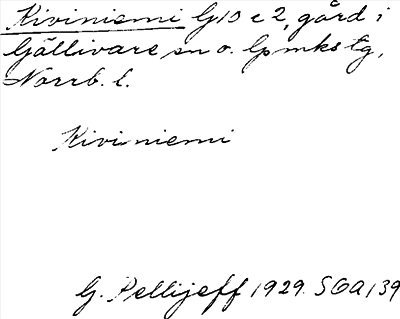 Kiviniemi G10 c 2, gård i
Gällivare sn o. lpmks tg,
Norrb. l.
Kiviniemi
G. Pellijeff 1929. SOA 139